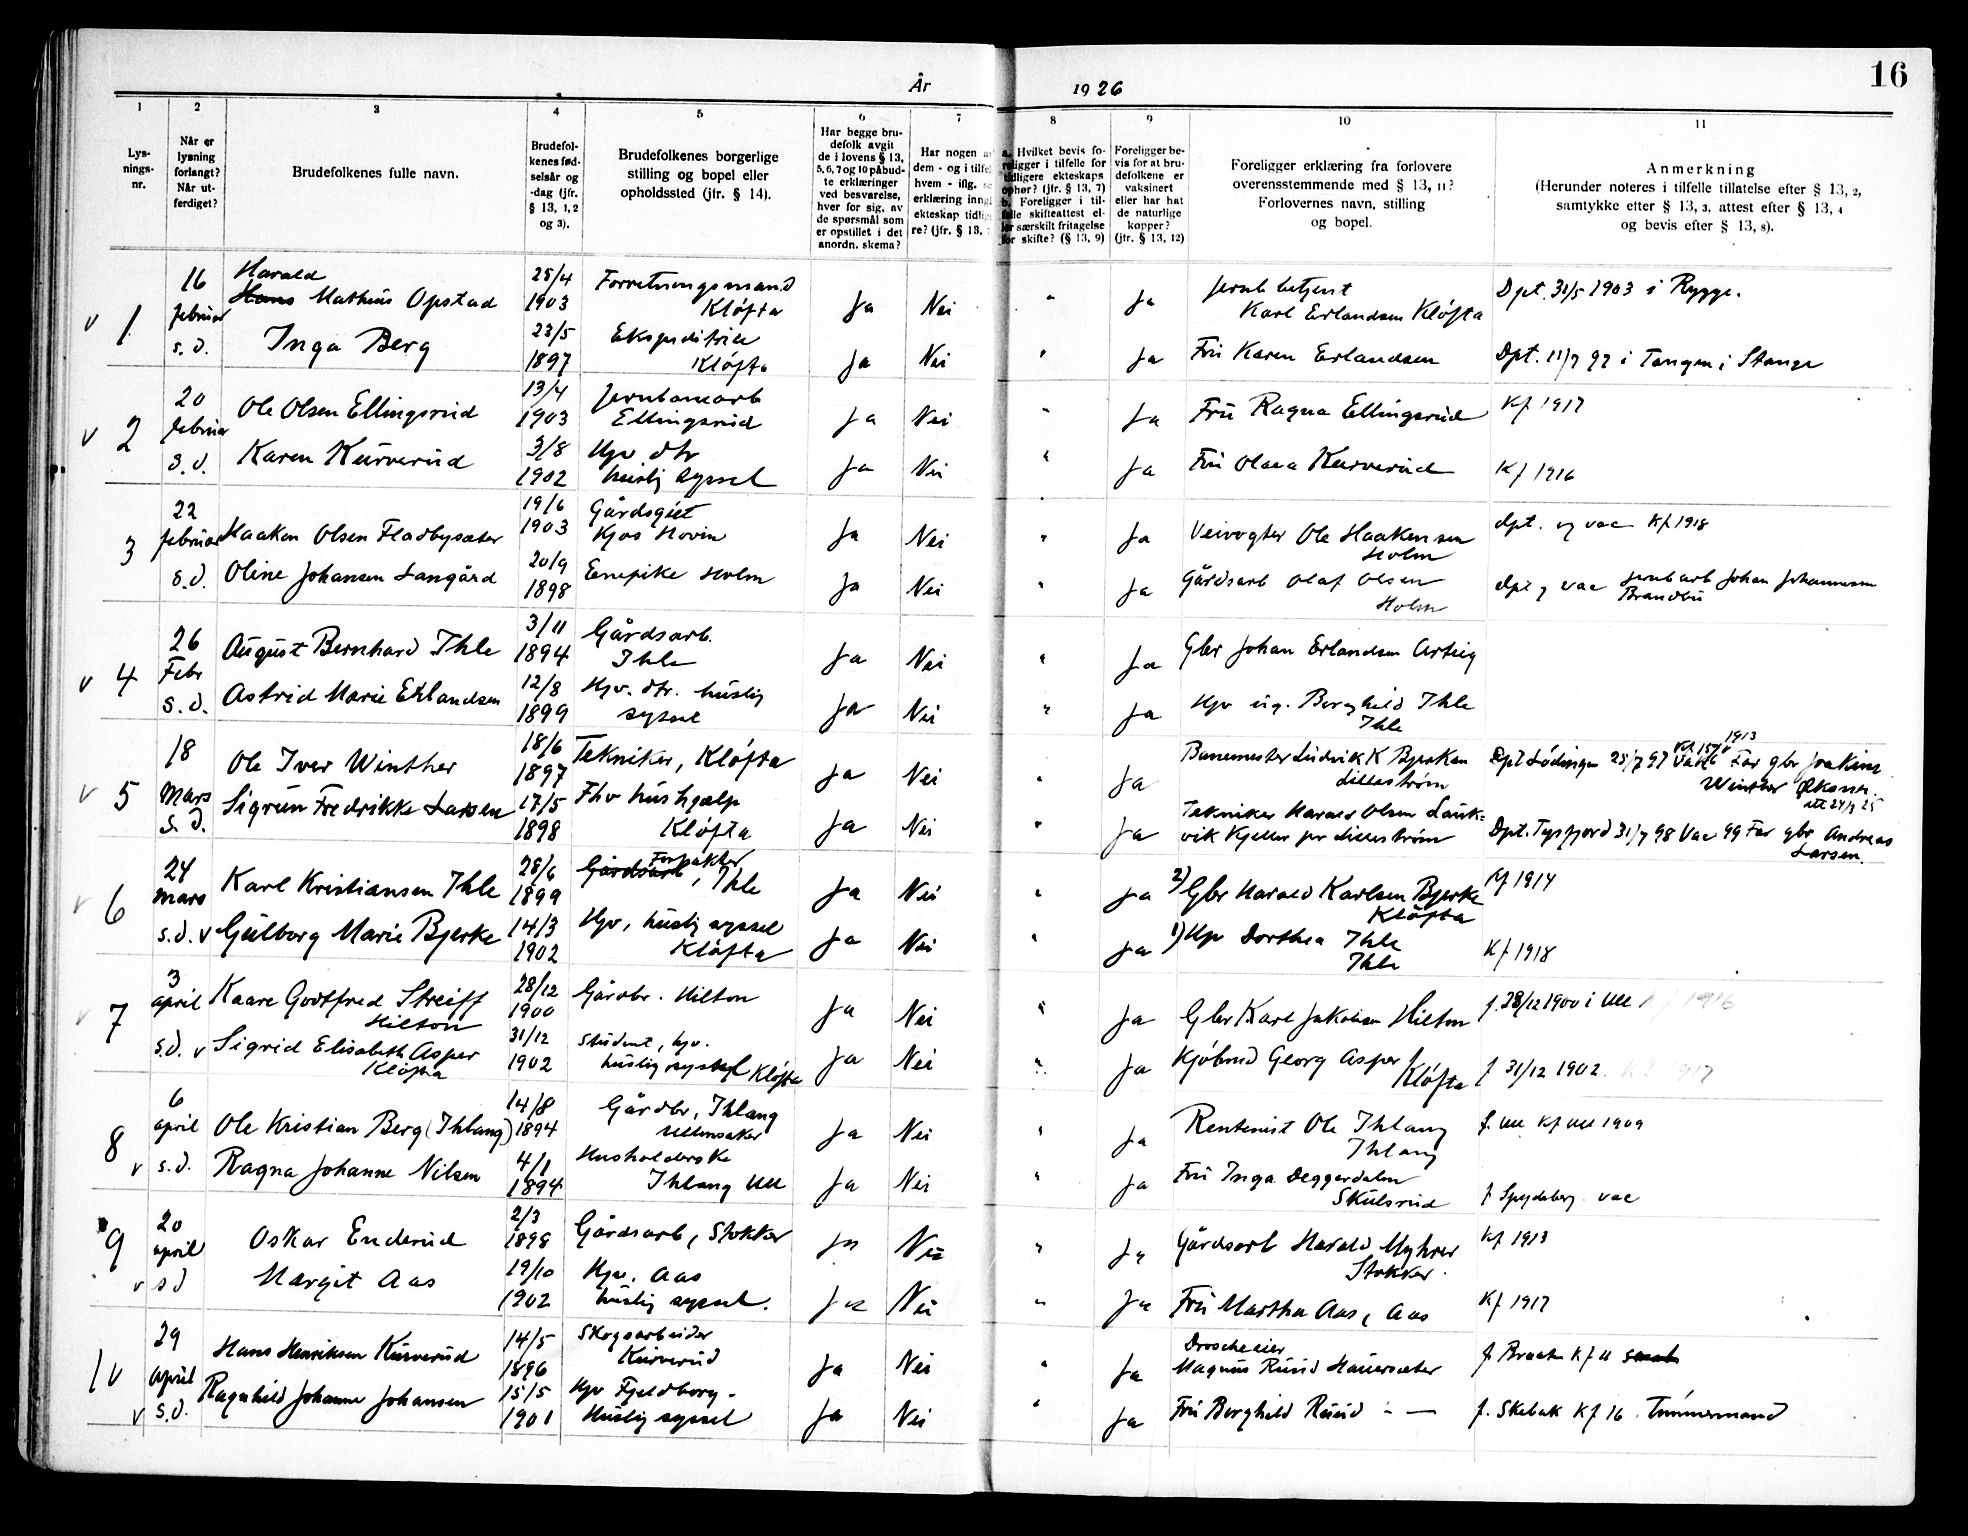 16
År 1926
1
2
3
4
5
6
7
8
9
10
11
Lys-
nings-
nr.
Når er
lysning
forlangt?
Når ut-
ferdiget?
Brudefolkenes fulle navn.
Brudefol-
kenes fød-
selsår og
-dag (jfr.
§ 13, 1, 2
og 3).
Brudefolkenes borgerlige
stilling og bopel eller
opholdssted (jfr. § 14).
Har begge bru-
defolk avgit
de i lovens § 13,
5, 6, 7 og 10 påbud-
te erklæringer
ved besvarelse,
hver for sig, av
de spørsmål som
er opstillet i det
anordn. skema?
Har nogen a
dem - og i tilfel
hvem - iflg. s
erklæring inng
ekteskap tidlig
re? (jfr. § 13,
a. Hvilket bevis fo-
religger i tilfelle for
tidligere ekteskaps
ophør? (jfr. § 13, 7)
b. Foreligger i til-
felle skifteattest el-
ler særskilt fritagelse
for skifte? (§ 13, 9)
Foreligger be-
vis for at bru-
defolkene er
vaksinert
eller har hat
de naturlige
kopper?
(jfr. § 13, 12)
Foreligger erklæring fra forlovere
overensstemmende med § 13, 11?
Forlovernes navn, stilling
og bopel.
Anmerkning
(Herunder noteres i tilfelle tillatelse efter § 13, 2,
samtykke efter § 13, 3, attest efter § 13, 4
og bevis efter § 13, 8).
v 1 16 februar Harald Hans Mathius Opstad 25/4 1903 Forretningsmand Kløfta Ja Nei " Ja Jernb betjent Karl Erlandsen Kløfta Dpt. 31/5 1903 i Rygge.
s.d. Inga Berg 23/5 1897 Ekspeditrice Kløfta Ja Nei " Ja Fru Karen Erlandsen Dpt. 11/7 97 i Tangen i Stange
v 2 20 februar Ole Olsen Ellingsrud 13/4 1903 Jernbanearb Ellingsrud Ja Nei " Ja Fru Ragna Ellingsrud Kf 1917
s.d. Karen Kurverud 3/8 1902 Hjv dtr huslig syssel Ja Nei " Ja Fru Olava Kurverud Kf 1916
3 22 februar Haakon Olsen Fladbysæter 19/6 1903 Gårdsgut Kjos Hovin Ja Nei " Ja Veivogter Ole Haakensen Holm dpt. og vac Kf 1918
s.d. Oline Johansen Langård 20/9 1898 Enepike Holm Ja Nei " Ja Gårdsarb Olaf Olsen Holm dpt og vac Jernb arb Johan Johannesen Brandbu
v 4 26 Febr August Bernhard Ihle 3/11 1894 Gårdsarb. Ihle Ja Nei " Ja Gbr Johan Erlandsen Arteig
s.d. Astrid Marie Erlandsen 12/8 1899 Hjv. dtr. huslig syssel Ja Nei " Ja Hjv ug. Borghild Ihle Ihle
v 5 18 Mars Ole Iver Winther 18/6 1897 Tekniker, Kløfta Ja Nei " Ja Banemester Ludvik K Bjerkan Lillestrøm Dpt Lødingen 25/7 97 1913 Far gbr Joakim Winther
s.d. Sigrun Fredrikke Larsen 17/5 1898 Fhv hushjælp Kløfta Ja Nei " Ja Tekniker Harald Olsen Lauk-
vik Kjeller pr Lillestrøm Dpt. Tysfjord 31/7 98 Vac 99 Far gbr Andreas Larsen.
v 6 24 Mars Karl Kristiansen Ihle 28/6 1899 Gårdsarb Forpakter, Ihle Ja Nei " Ja 2) Gbr Harald Karlsen Bjerke Kløfta Kf 1914
s.d. v Gulborg Marie Bjerke 14/3 1902 Hjv, huslig syssel Kløfta Ja Nei " Ja 1) Hjv Dorthea Ihle Ihle Kf 1918
7 3 april Kaare Godtfred Streiff Hilton 28/12 1900 Gårdbr. Hilton Ja Nei " Ja Gbr Karl Jakobsen Hilton f. 28/12 1900 i Ull Kf 1916
s.d. v Sigrid Elisabeth Asper Kløfta 31/12 1902 Student, hjv. huslig syssel Kløfta Ja Nei " Ja Kjøbmd Georg Asper Kløfta f 31/12 1902. Kf 1917
8 6 april Ole Kristian Berg (Ihlang) 14/8 1894 Gårdbr, Ihlang Ullensaker Ja Nei " Ja Rentenist Ole Ihlang Ihlang f. Ull Kf Ull 1909
v s.d. Ragna Johanne Nilsen 4/1 1894 Husholderske Ihlang Ull Ja Nei " Ja Fru Inga Deggerdalen Skulsrud f Spydeberg vac
9 20 april Oskar Enderud 2/3 1898 Gårdsarb, Stokker Ja Nei " Ja Gårdsarb Harald Myhrer Stokker. Kf 1913
v s d Margit Aas 19/10 1902 Hjv. Aas huslig syssel. Ja Nei " Ja Fru Martha Aas, Aas Kf 1917
10 29 april Hans Henriksen Kurverud 14/5 1896 Skogsarbeider Kurverud Ja Nei " Ja Droscheeier Magnus Ruud Hauersæter f. Kf 11
v s.d. Ragnhild Johanne Johansen 15/5 1901 Hjv Fjeldborg - Huslig syssel Ja Nei " Ja Fru Borghild Ruud - — f. Skebak Kf 16. Tømmermand